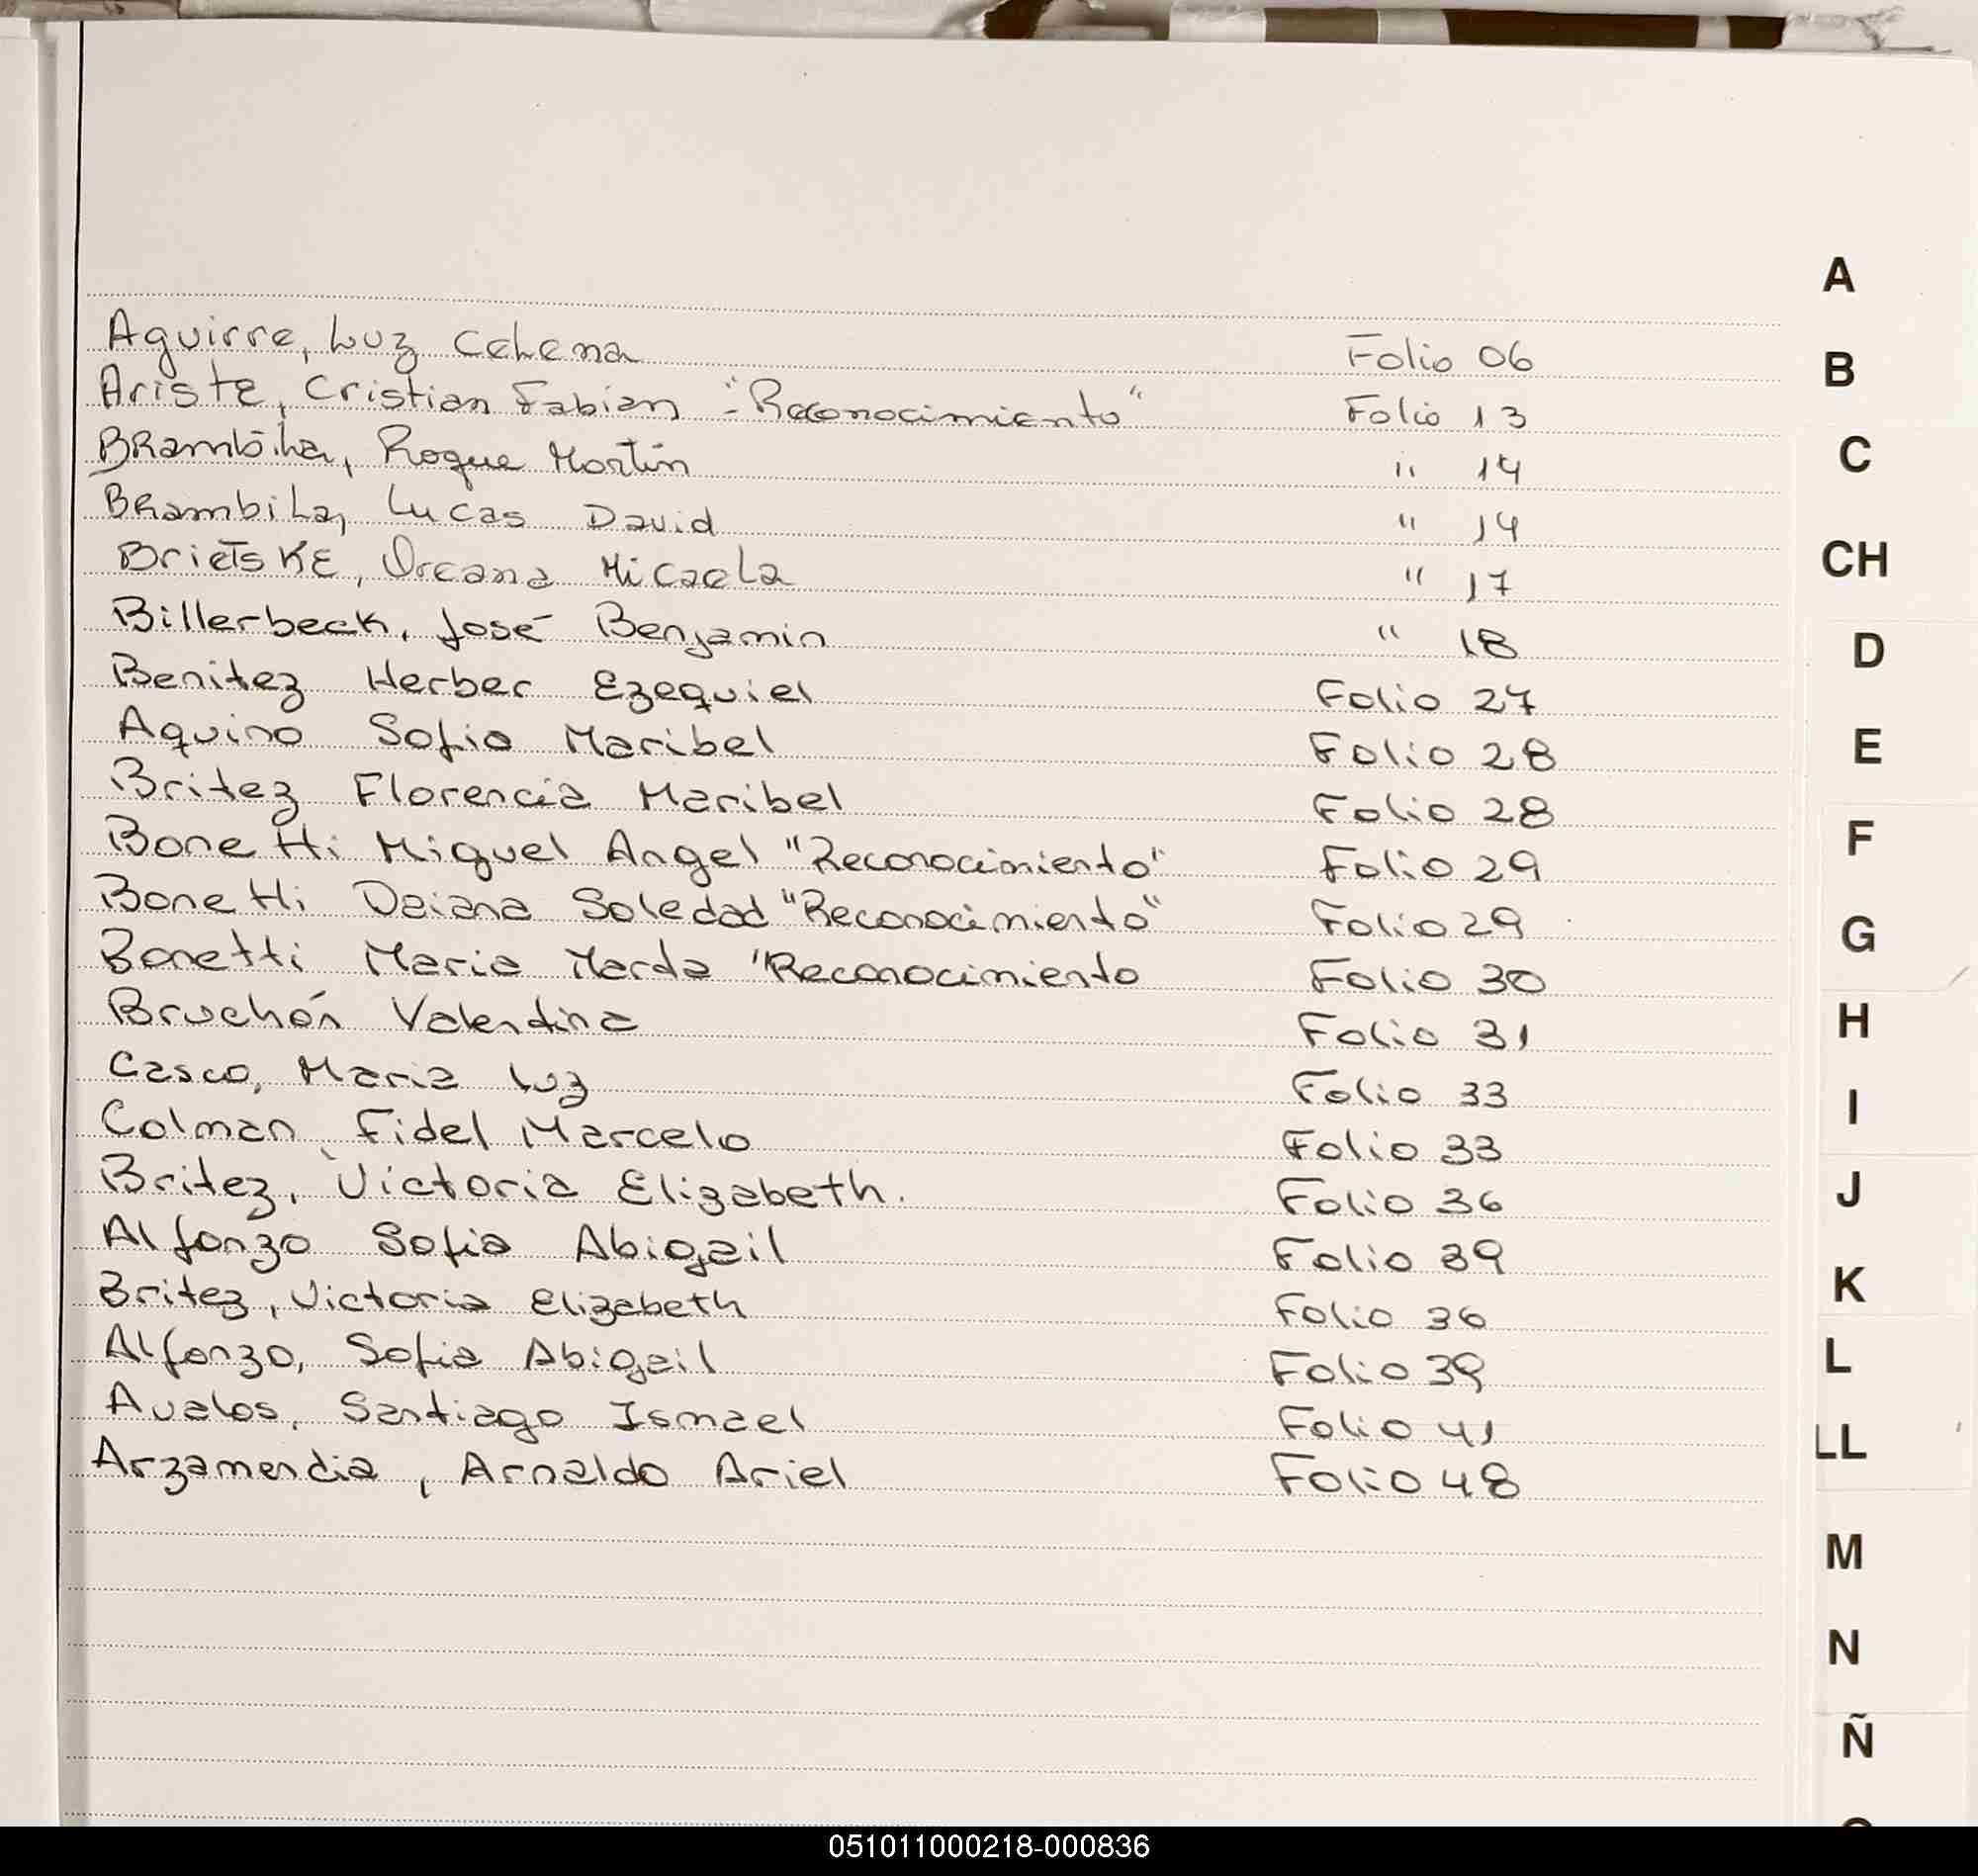 Aguirre, Luz Celena Folio 06
Ariste, Cristian Fabian - "Reconocimiento" Folio 13
BRambila, Roque Martín " 14
BRambila, Lucas David " 14
BrietsKE, Oreana Micaela " 17
Billerbeck, José Benjamin " 18
Benitez Herber Ezequiel Folio 27
Aquino Sofia Maribel Folio 28
Britez Florencia Maribel Folio 28
Bonetti Miguel Angel "Reconocimiento" Folio 29
Bonetti Daiana Soledad "Reconocimiento" Folio 29
Bonetti Maria Marta "Reconocimiento Folio 30
Bruchón Valentina Folio 31
Casco, Maria Luz Folio 33
Colman Fidel Marcelo Folio 33
Britez, Victoria Elizabeth. Folio 36
Alfonzo Sofia Abigail Folio 39
Britez, Victoria Elizabeth Folio 36
Alfonzo, Sofia Abigail Folio 39
Avalos, Santiago Ismael Folio 41
Arzamendia, Arnaldo Ariel Folio 48
A
B
C
CH
D
E
F
G
H
I
J
K
L
LL
M
N
Ñ
051011000218-000836